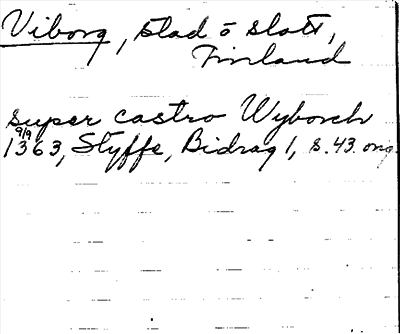 Viborg, stad o slott,
Finland
super castro Wyborch
9/9
1363, Styffe, Bidrag 1, s. 43. orig.